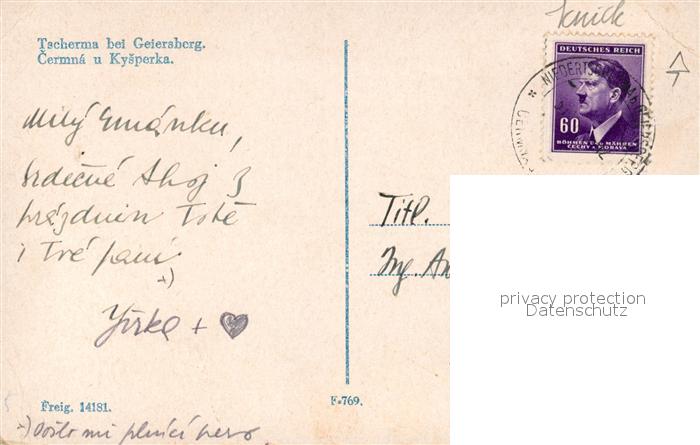 knick
Tscherma bei Geiersberg.
Čermná u Kyšperka.
DEUTSCHES REICH
60
BÖHMEN UND MÄHREN
ČECHY A MORAVA
Milý
Srdečné Ahoj z
prázdnin Tobě
i Tvé paní
+)
Jirka +
Titl.
Ing. An
privacy protection
Datenschutz
Freig. 14181.
F-769.
+) Došlo mi plnící pero